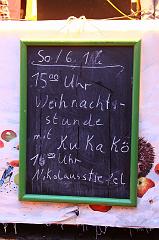 So/6. 12.
15⁰⁰ Uhr
Weihnachts-
stunde
mit
Ku Ka Kö
18⁰⁰ Uhr
Nikolausstiefel